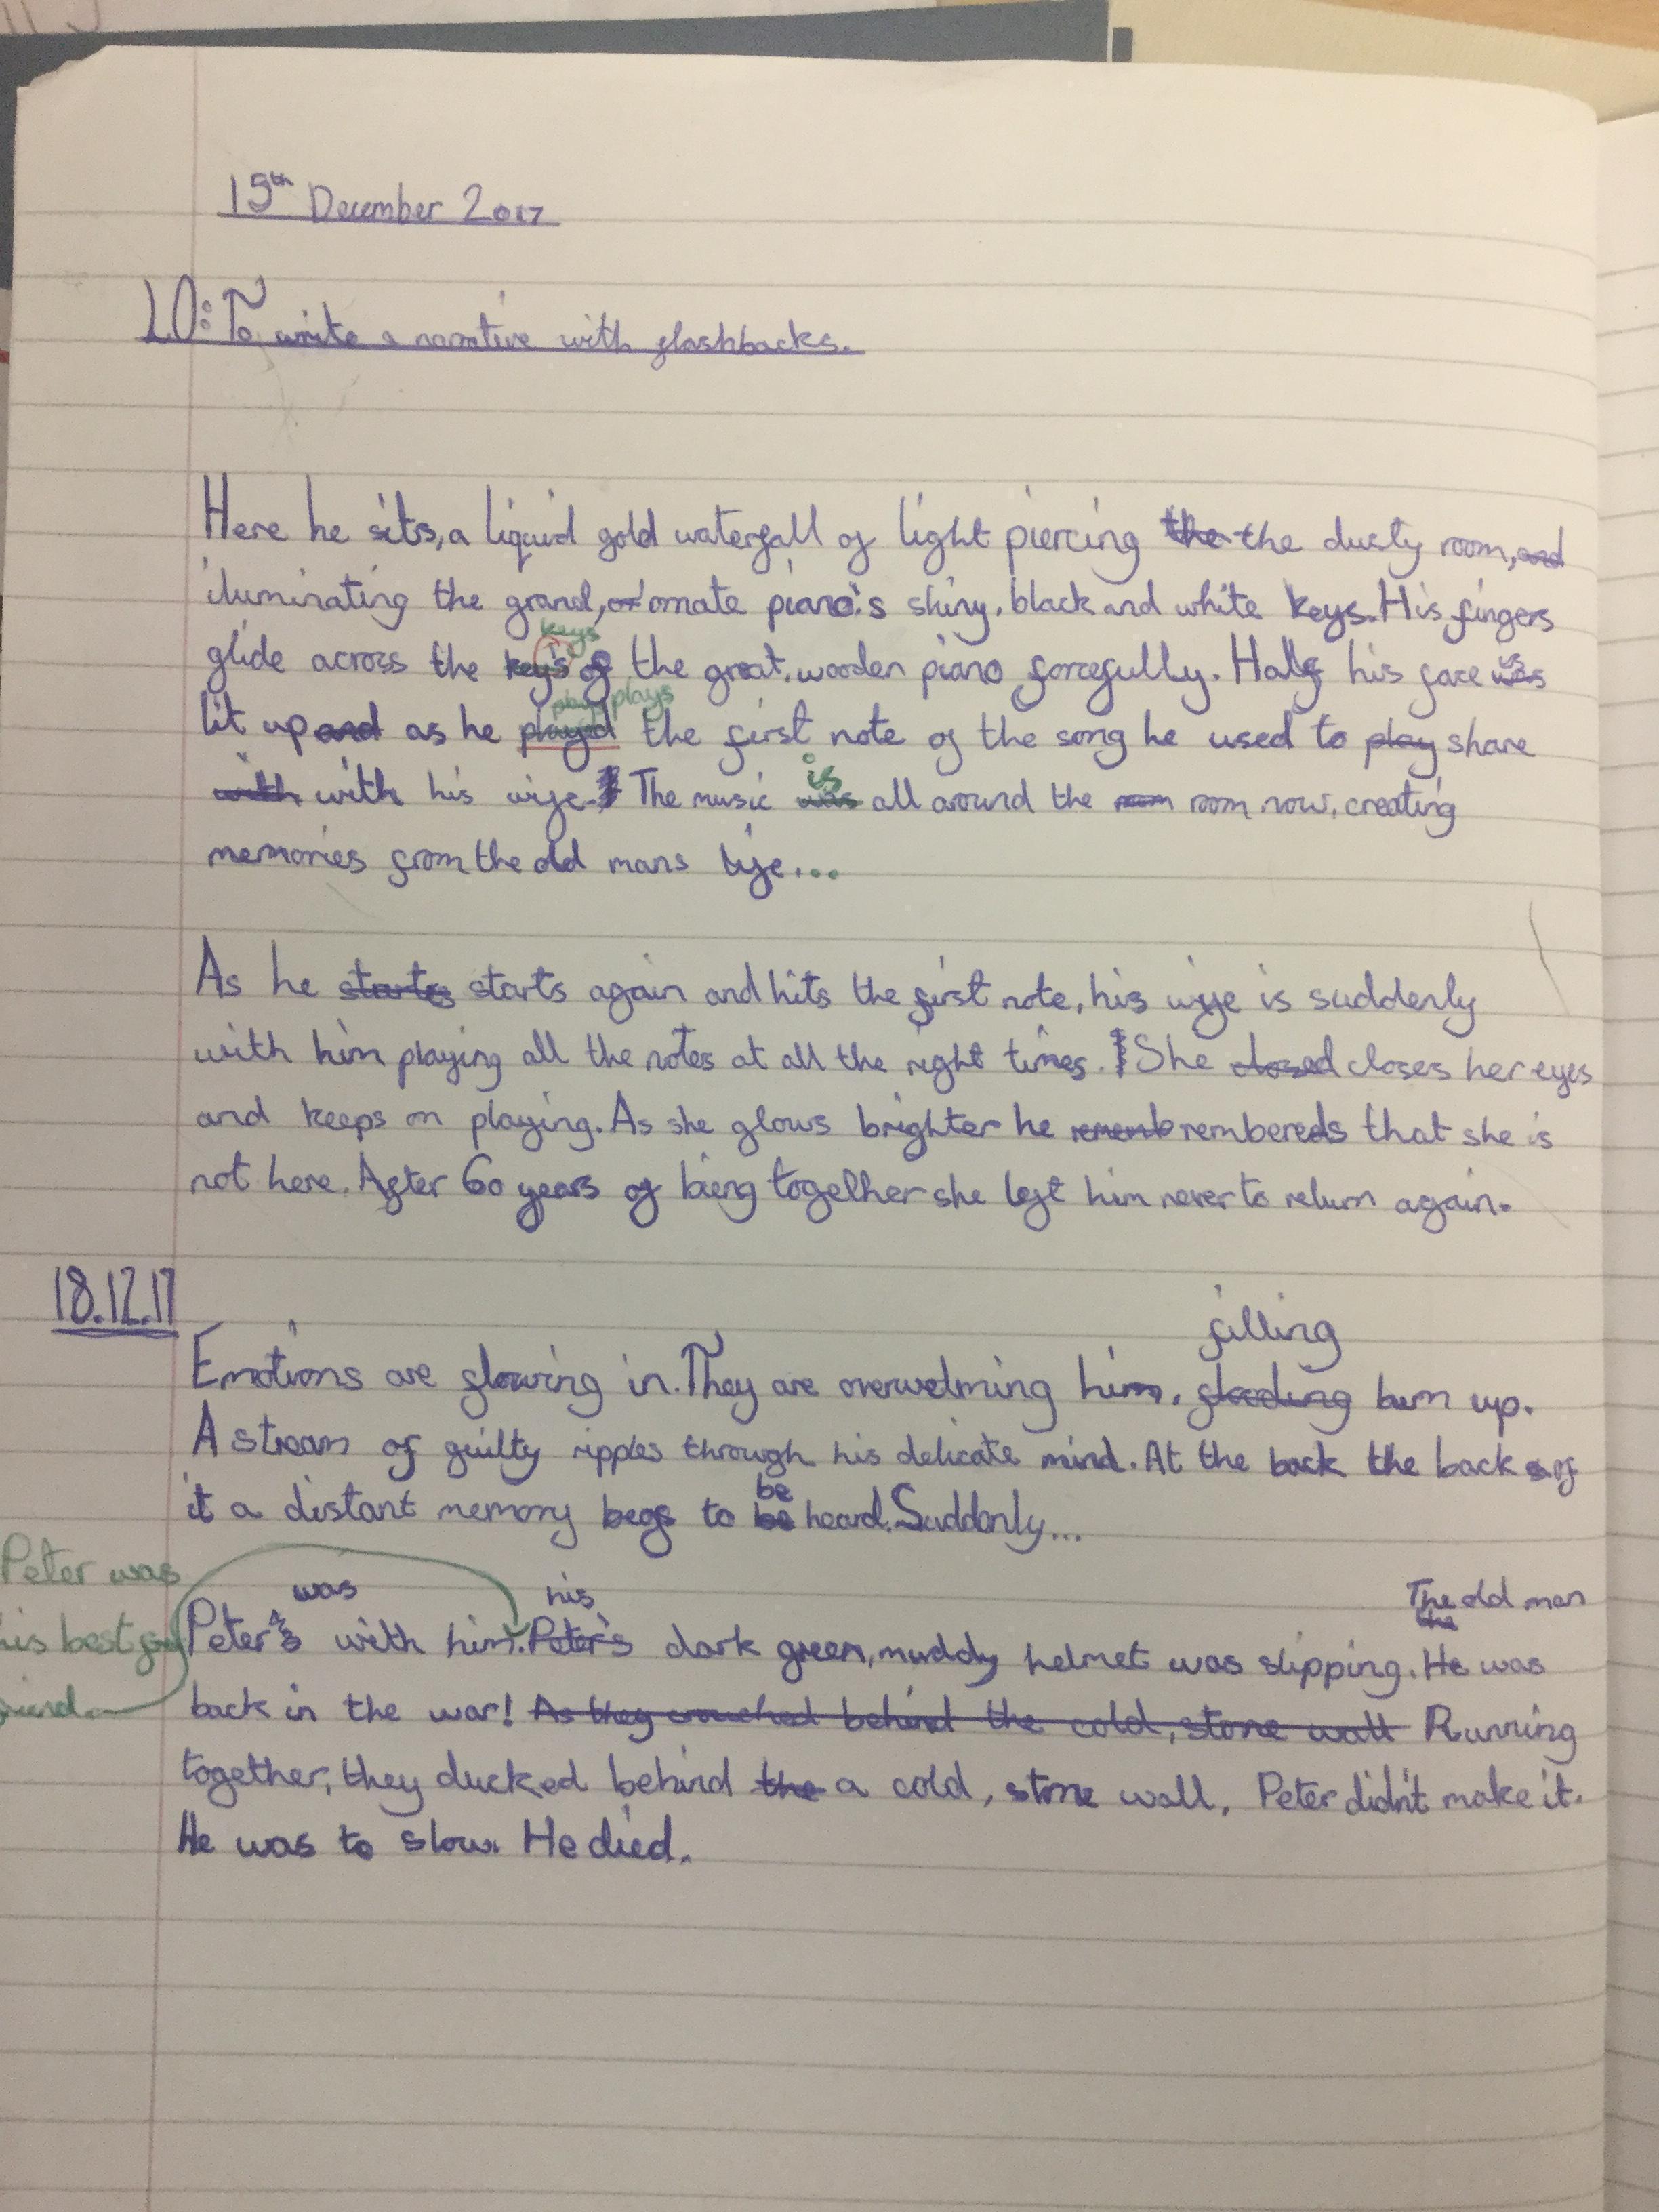 15th December 2017
LO: To write a narrative with flashbacks.
Here he sits, a liquid gold waterfall of light piercing the the dusty room, and
iluminating the grand, or ornate piano's shiny, black and white keys. His fingers
keys
glide across the key's of the great, wooden piano forcefully. Half his face was
is
plays
lit up and as he played the first note of the song he used to play share
is
with with his wife. The music was all around the room room now, creating
memories from the old mans life...
As he starts starts again and hits the first note, his wife is suddenly
with him playing all the notes at all the right times. She closed closes her eyes
and keeps on playing. As she glows brighter he rememb rembereds that she is
not here. After 60 years of bieng together she left him never to return again.
18.12.17
filling
Emotions are flowing in. They are overwelming him, flooding him up.
A stream of guilty ripples through his delicate mind. At the back the back of
be
it a distant memory begs to be heard. Suddonly...
Peter was
his best
friend.
was
his
The old man
the
Peter's with him. Peter's dark green, muddy helmet was slipping. He was
back in the war! As they crouched behind the cold, stone wall Running
together, they ducked behind the a cold, stone wall, Peter didn't make it.
He was to slow. He died.